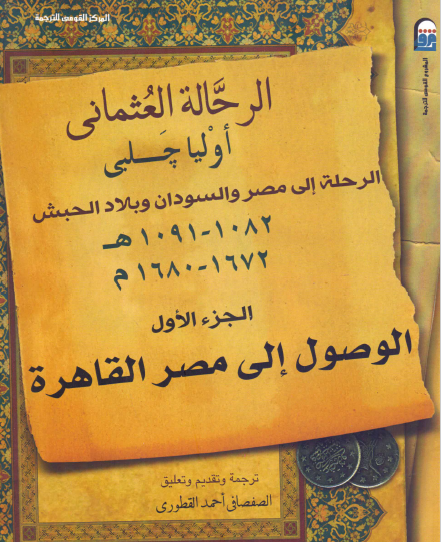 المركز القومى للترجمة
المشروع القومى للترجمة
الرحَّالة العُثمانى
أوْليا چَـلـبى
الرحلة إلى مصر والسودان وبلاد الحبش
١٠٨٢-١٠٩١ هـ
١٦٧٢-١٦٨٠ م
الجزء الأول
الوصول إلى مصر القاهرة
ترجمة وتقديم وتعليق
الصفصافى أحمد القطورى